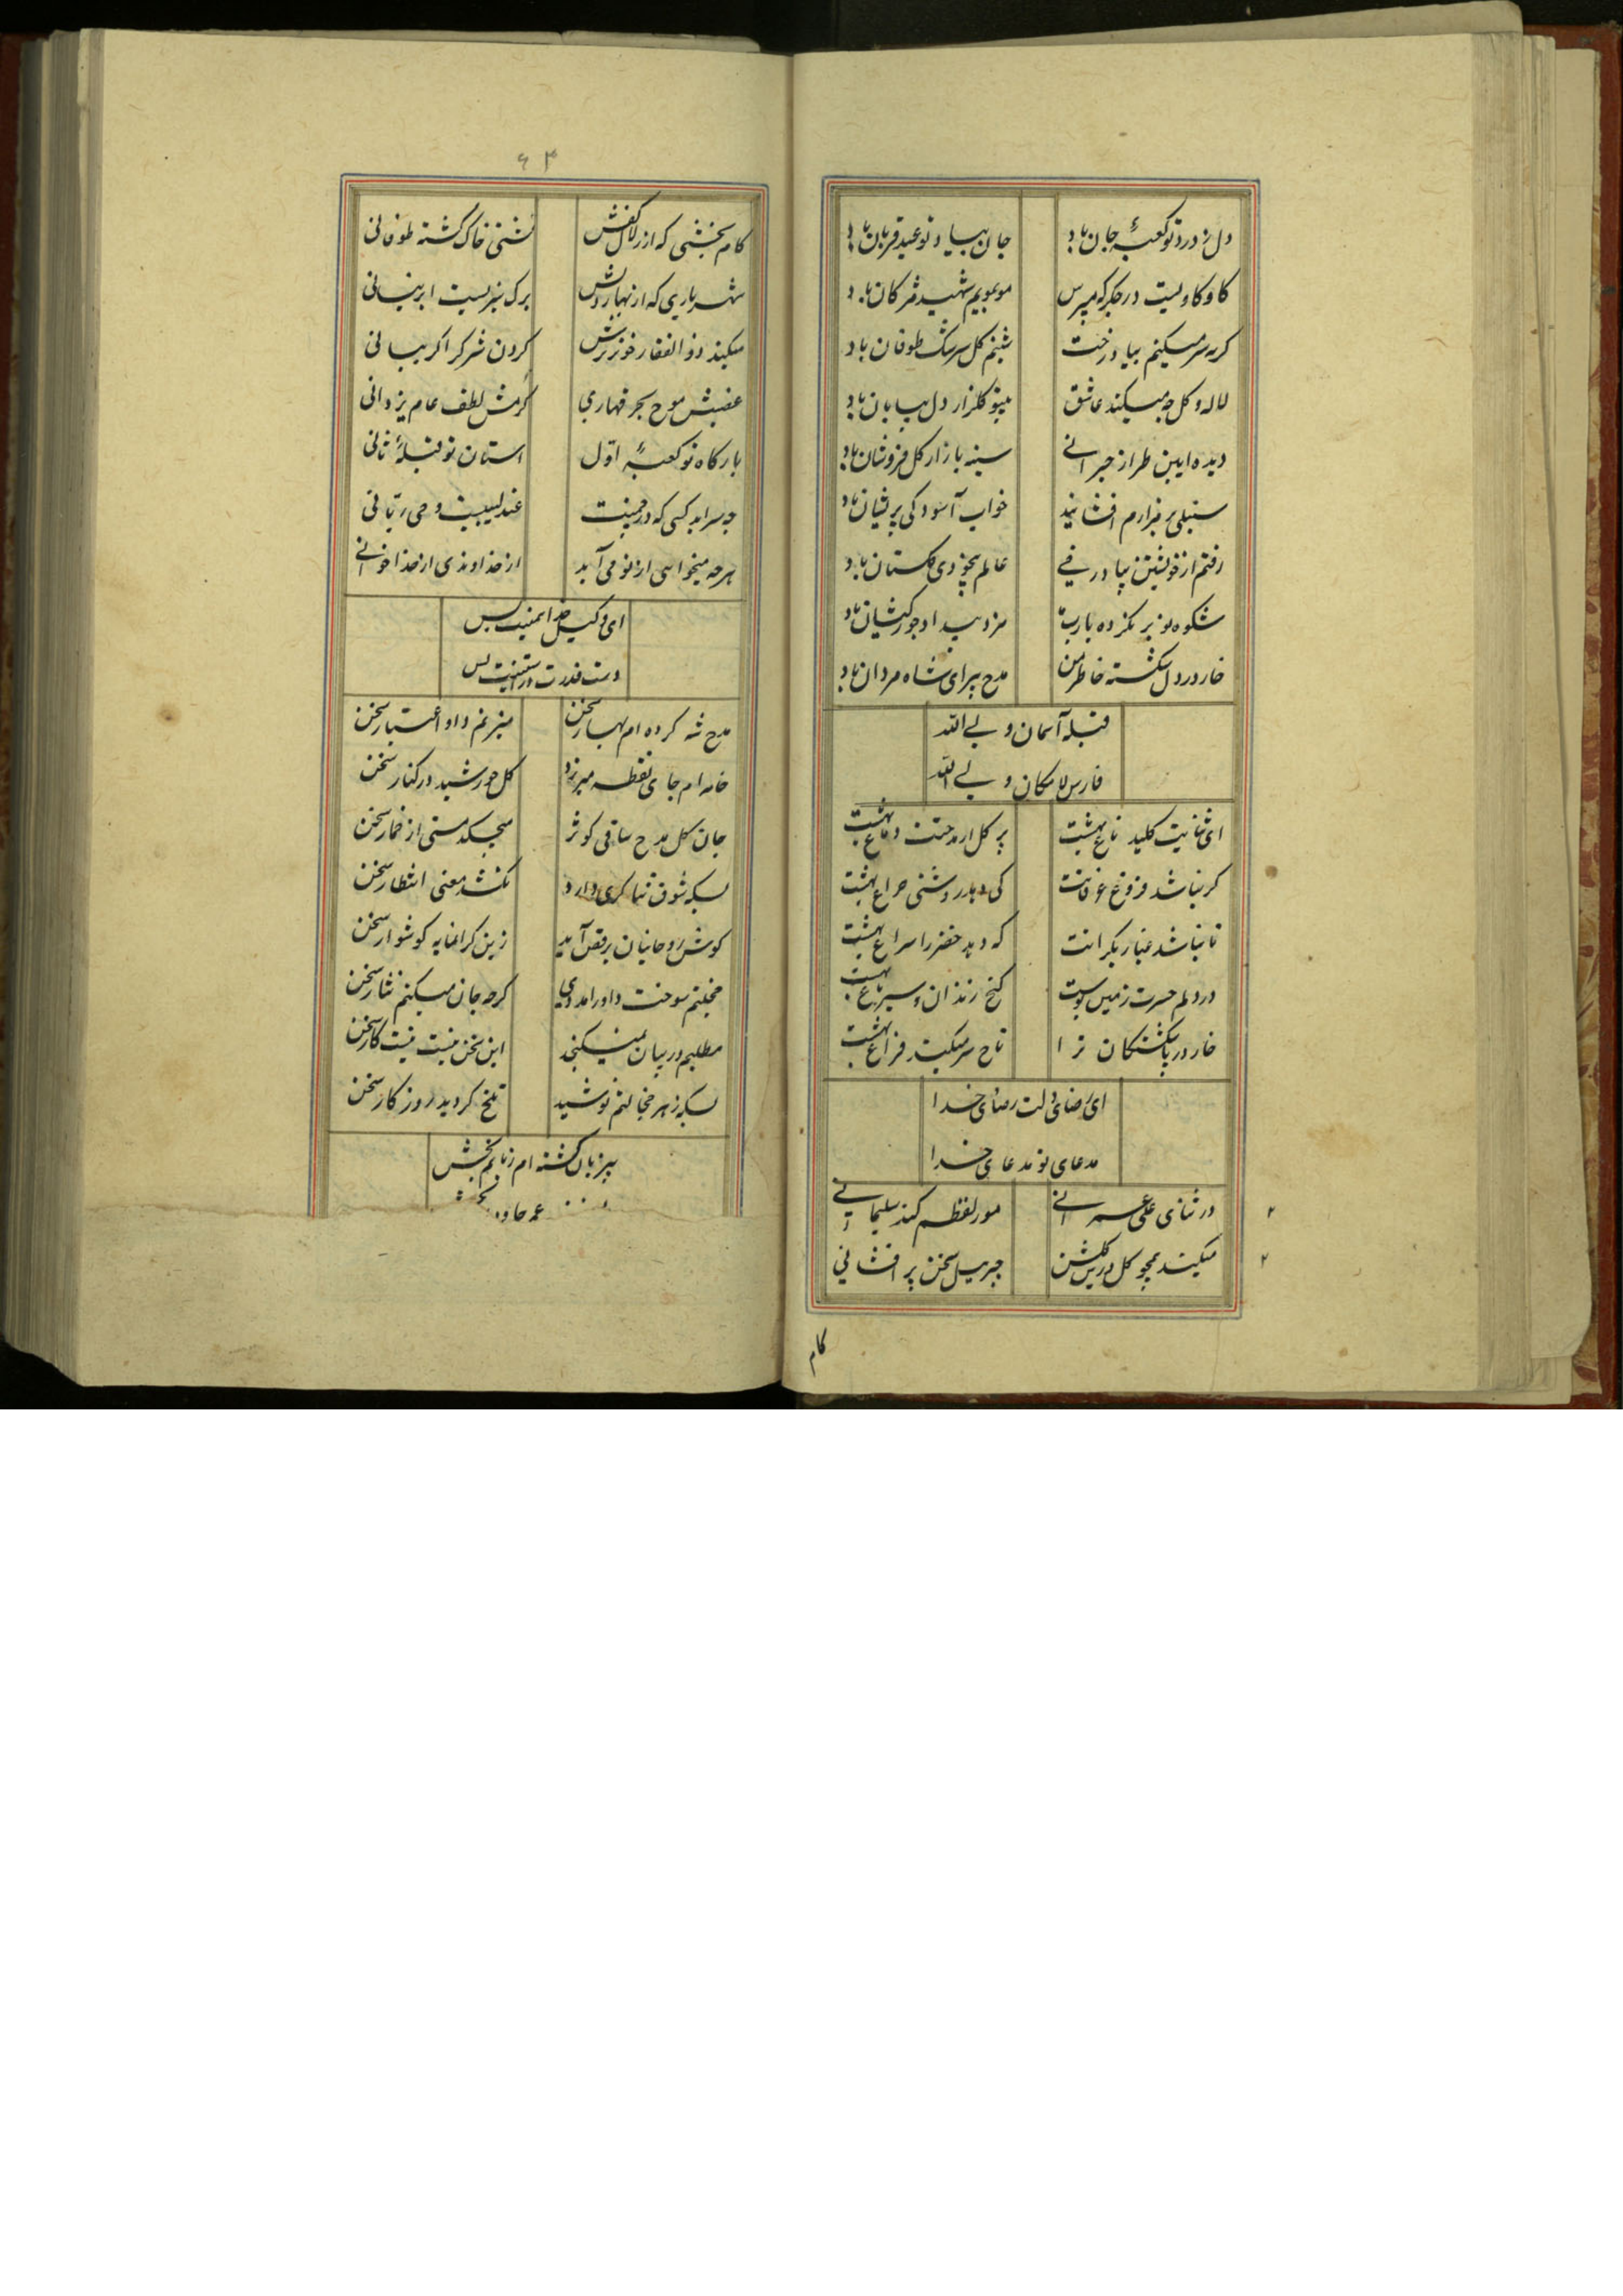 دل ز درد تو کعبهٔ جان باد جان بیاد تو عید قربان باد
کاوکاویست در جگر که مپرس موبمویم شهید مژکان باد
کریه سر میکنم بیاد رخت شبنم کل سرشک طوفان باد
لاله و کل چه میکند عاشق بیتو کلزار دل بیابان باد
دیده ایین طراز حیرانی سینه بازار کل فروشان باد
سنبلی بر مزارم افشانید خواب آسودکی پریشان باد
رفتم از خویشتن بیاد رخی عالم بیخودی کلستان باد
شکوه نوبر نکرده یارب مزد بیداد جورکیشان باد
خار در دل شکسته خاطر من مدح پیرای شاه مردان باد
قبله آسمان ولی الله
فارس لامکان ولی الله
ای ثنایت کلید باغ بهشت پر کل از مدحتت دماغ بهشت
کر نباشد فروغ عرفانت کی دهد روشنی چراغ بهشت
تا نباشد غبار رهکذرانت که دهد خضر را سراغ بهشت
در دلم حسرت زمین بوست کنج زندان و سیر باغ بهشت
خار در پا شکستکان ترا تاج سر میکند فراغ بهشت
ای رضای دلت رضای خدا
مدعای تو مدعای خدا
در ثنای علی عمرانی مور لفظم کند سلیمانی
میکند همچو کل درین کلشن جبریل سخن پر افشانی
کام
۶۳
کام بخشی که از زلال کفش کشتی خاک کشته طوفانی
شهریاری که از بهار دلش برک سبزیست ابر نیسانی
میکند ذوالفقار خونریزش کردن شرک را کریبانی
غضبش موج بحر قهاری کرمش لطف عام یزدانی
بارکاه تو کعبهٔ اول استان تو قبلهٔ ثانی
چه سراید کسی که در چمنت عندلیبیست وحی ربانی
هرچه میخواهی از تو می آید از خداوندی از خدا خوانی
ای وکیل خدا همینت بس
دست قدرت در آستینت بس
مدح شه کرده ام بهار سخن میزنم داد اعتبار سخن
خامه ام جای نقطه میریزد کل خورشید در کنار سخن
جان کل مدح ساقی کوثر میچکد مستی از خمار سخن
بسکه شوق ثناکری دارد نکشد معنی انتظار سخن
کوش روحانیان برقص آمد زین کرانمایه کوشوار سخن
خجلتم سوخت داور امددی کرچه جان میکنم نثار سخن
مطلبم در بیان نمیکنجد این سخن نیست نیست کار سخن
بسکه زهر خجالتم نوشید تلخ کردید روزکار سخن
بیزبان کشته ام زبانم بخش